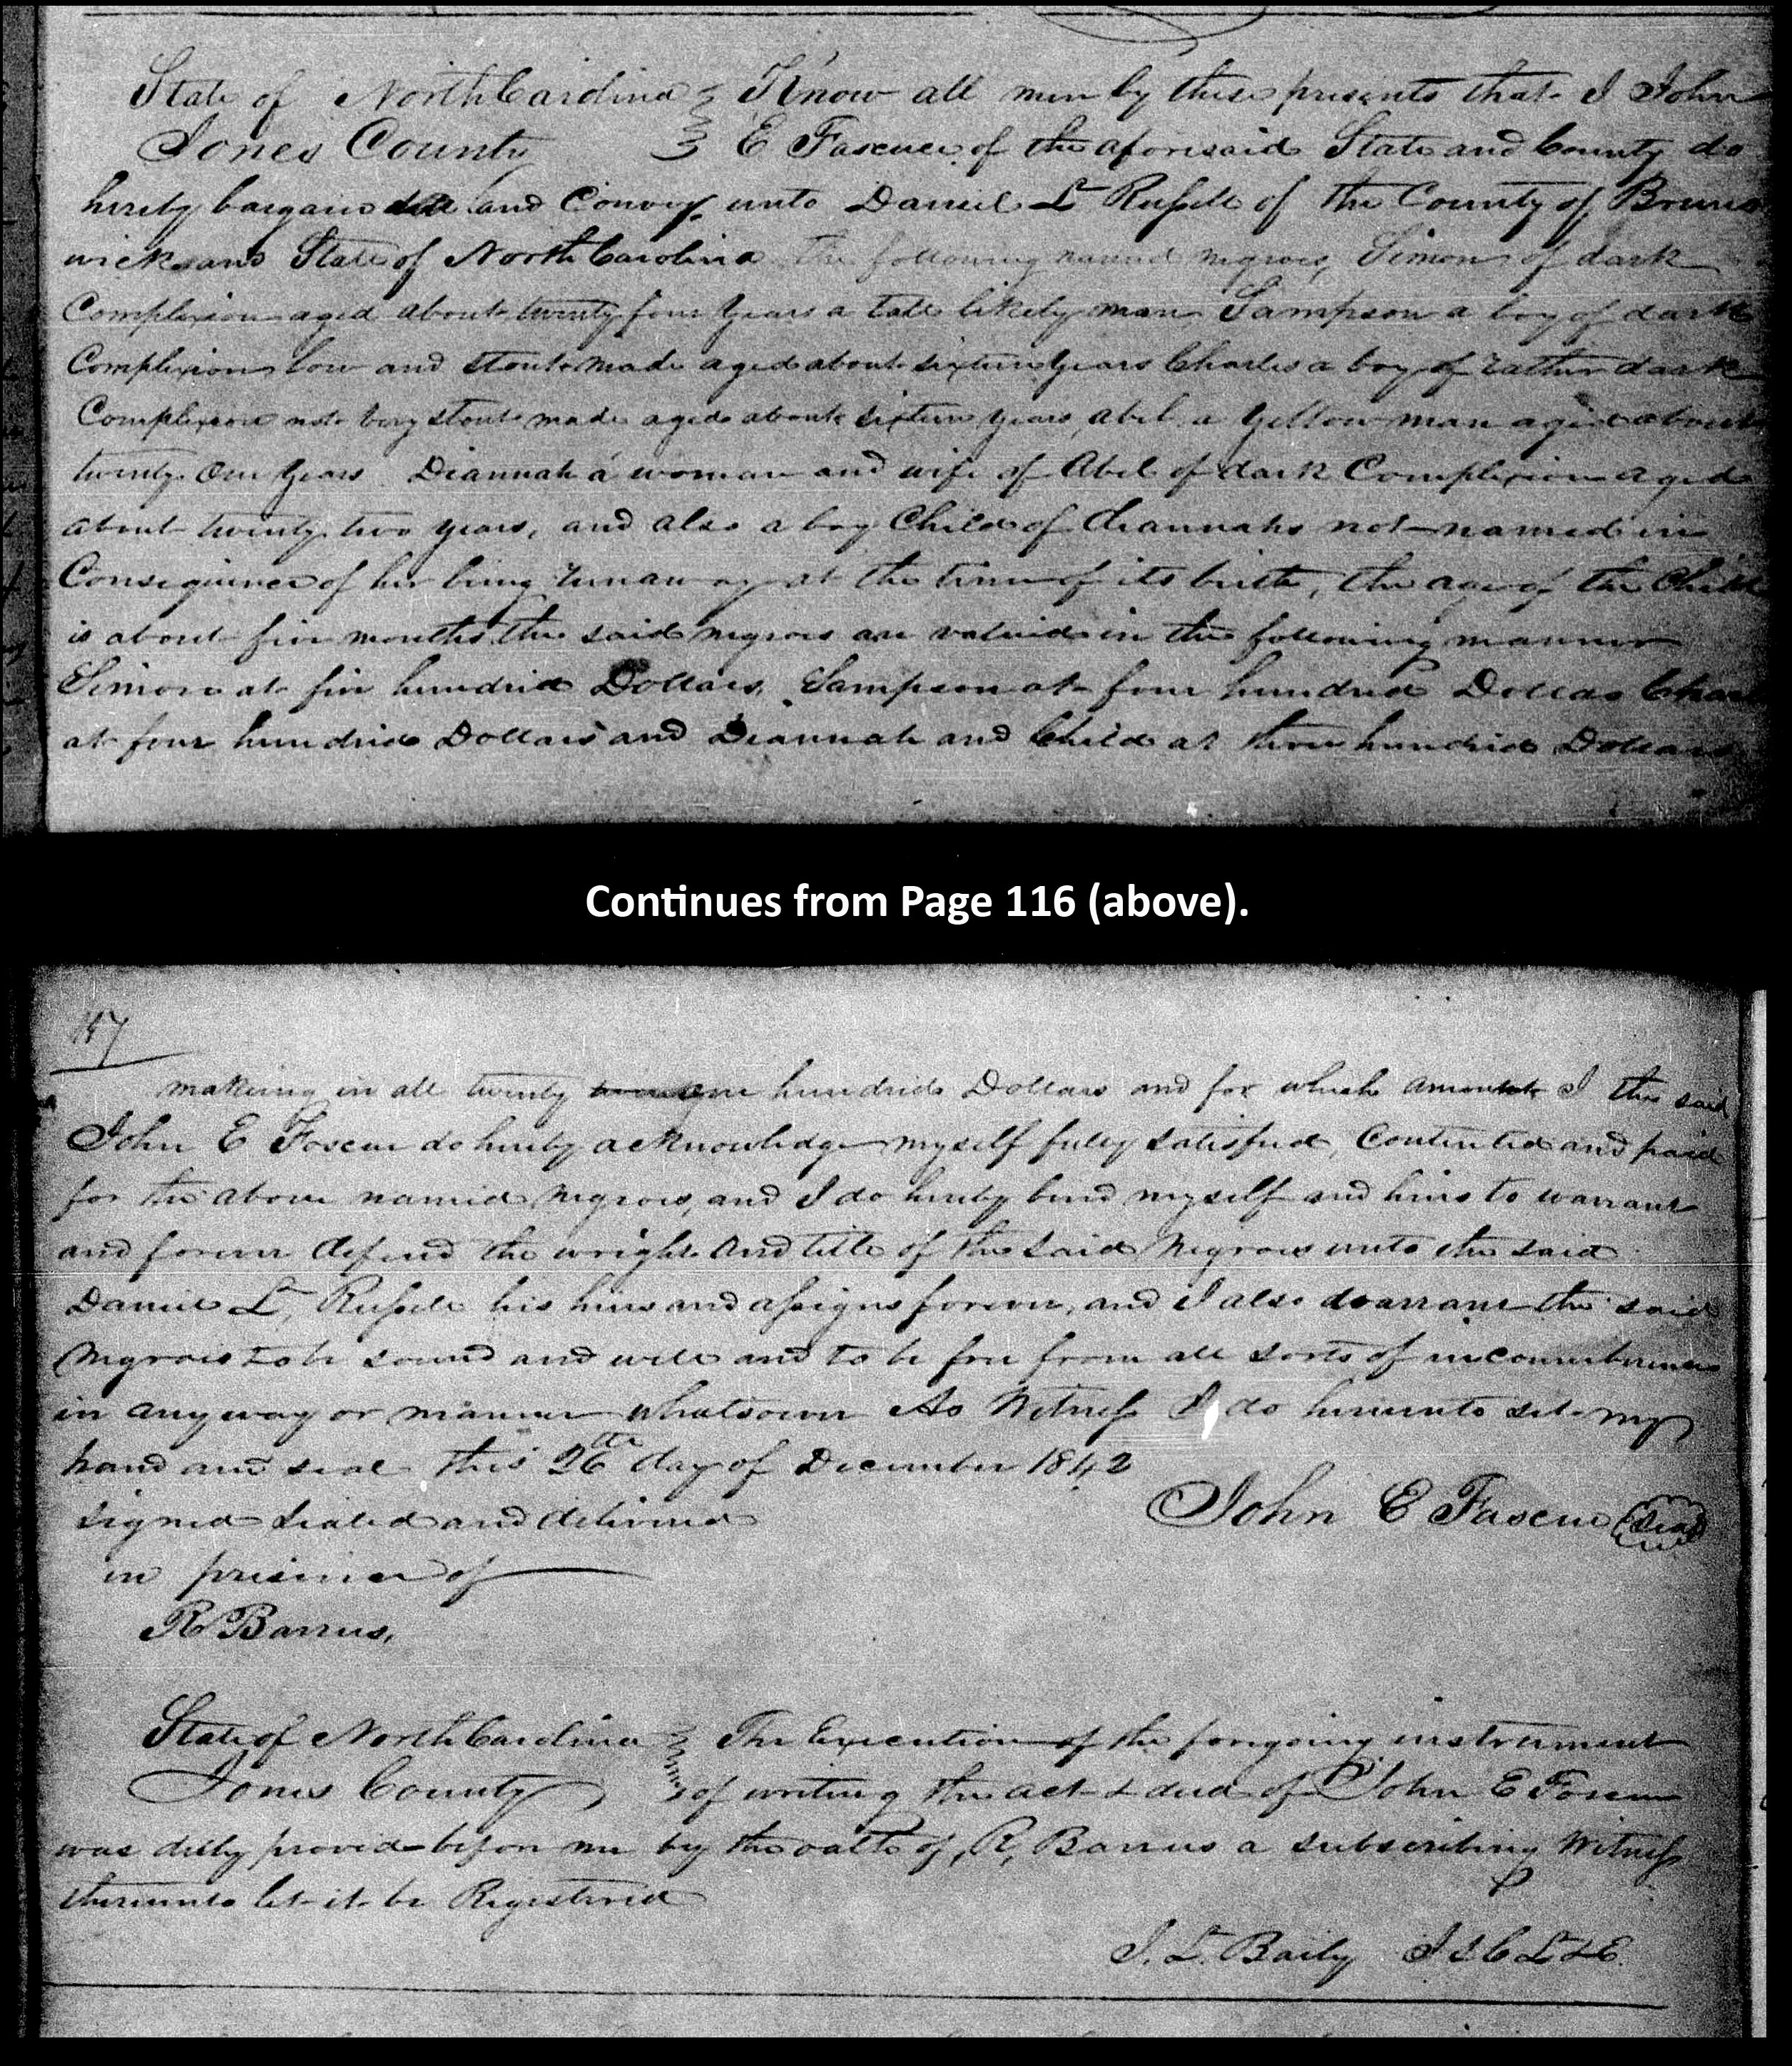 State of North Carolina Know all men by these presents that I John
Jones County E Fascue of the aforesaid State and County do
hereby bargain sell and Convey unto Daniel L Russell of the County of Bruns
wick and State of North Carolina the following named negroes, Simon of dark
Complexion aged about twenty four years a tall likely man Sampson a boy of dark
Complexion low and stout made aged about sixteen years Charles a boy of rather dark
Complexion not very stout made aged about sixteen years, abel a yellow man aged about
twenty One years Diannah a woman and wife of Abel of dark Complexion aged
about twenty two years, and also a boy Child of diannahs not named in
Consequence of her being runaway at the time of its birth, the age of the Child
is about five months the said negroes are valued in the following manner
Simon at five hundred Dollars, Sampson at four hundred Dollars Charles
at four hundred Dollars and Diannah and Child at three hundred Dollars
Continues from Page 116 (above).
117
making in all twenty one hundred Dollars and for which amount I the said
John E Foscue do hereby acknowledge myself fully satisfied, Contented and paid
for the above named negroes, and I do hereby bind myself and heirs to warrant
and forever defend the wright and title of the said Negroes unto the said
Daniel L, Russell his heirs and assigns forever, and I also warrant the said
Negroes to be sound and well and to be free from all sorts of incumbrance
in any way or manner whatsoever As Witness I do hereunto set my
hand and seal this 26th day of December 1842
signed sealed and delivered John E Fascue Seal
in presence of
R Barrus,
State of North Carolina The Execution of the foregoing instrument
Jones County of writing the act & deed of John E Foscue
was duly proved before me by the oath of, R, Barrus a subscribing Witness
thereunto let it be Registered
J. L. Baily J S C L & E